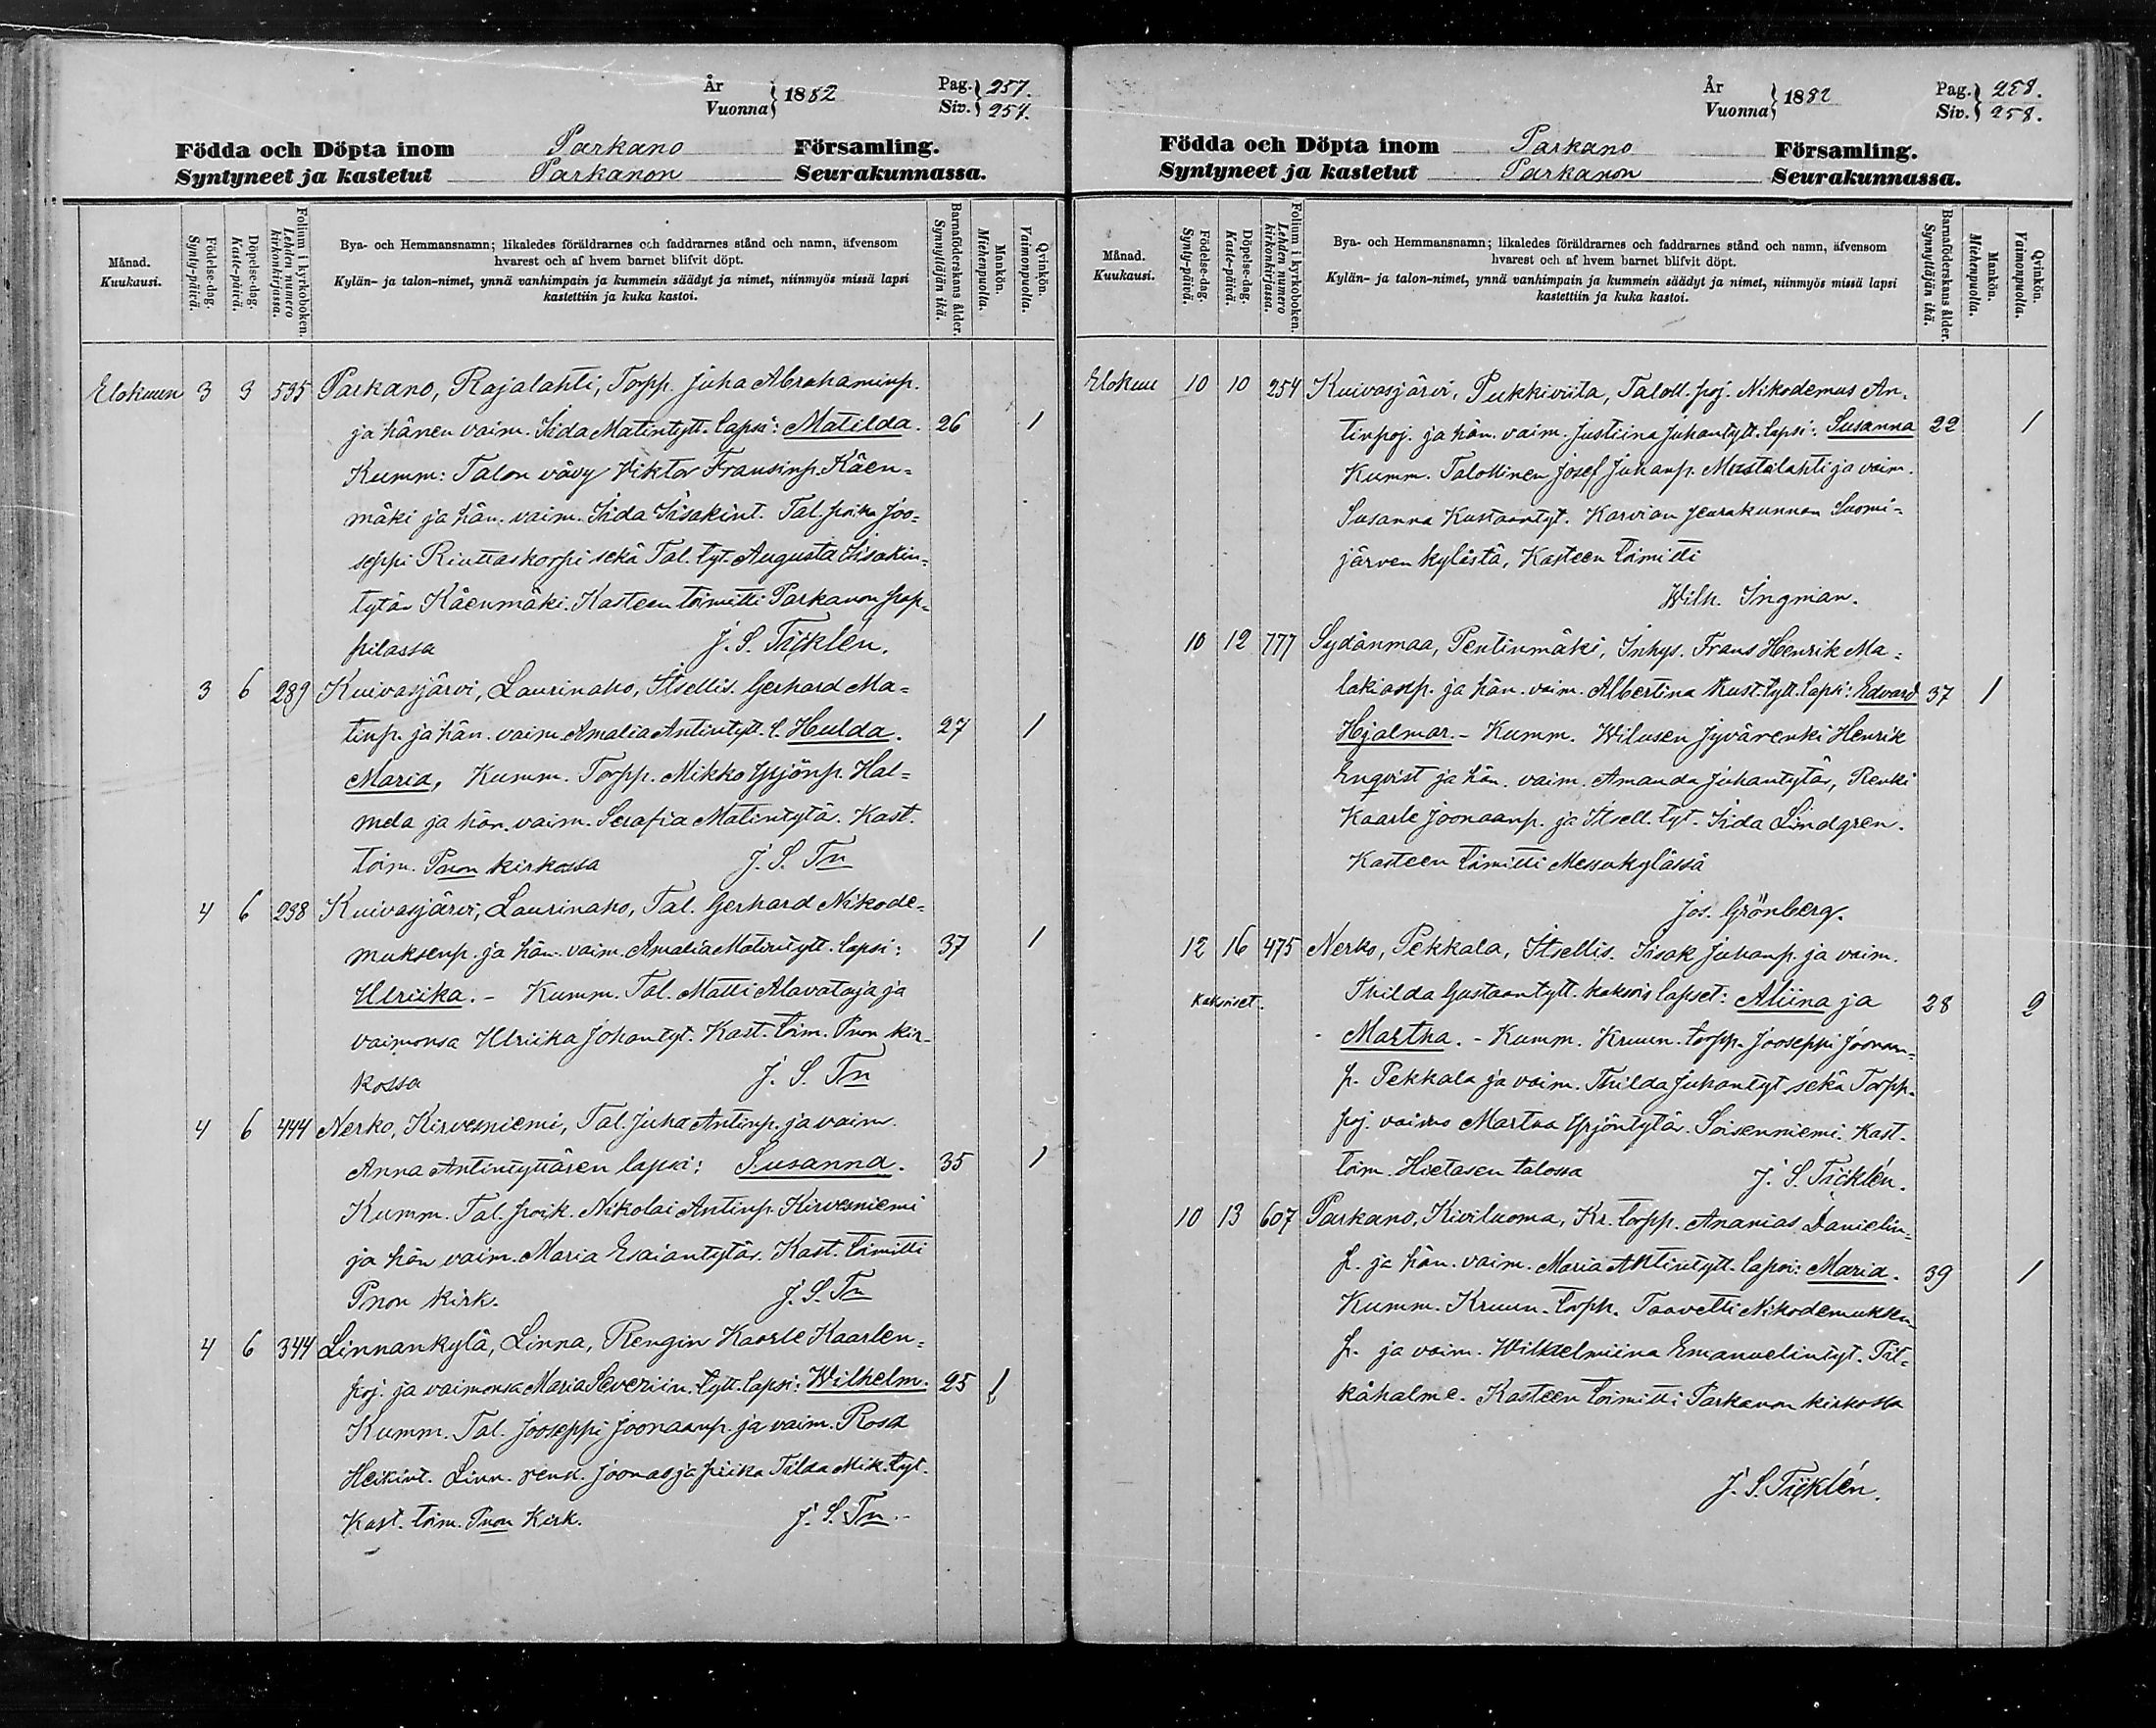 År
Vuonna } 1882
Pag. } 257.
Siv. } 257.
Födda och Döpta inom Parkano Församling.
Syntyneet ja kastetut Parkanon Seurakunnassa.
Månad.
Kuukausi.
Födelse-dag.
Synty-päivä.
Döpelse-dag.
Kaste-päivä.
Folium i kyrkoboken.
Lehden numero
kirkonkirjassa.
Bya- och Hemmansnamn; likaledes föräldrarnes och faddrarnes stånd och namn, äfvensom
hvarest och af hvem barnet blifvit döpt.
Kylän- ja talon-nimet, ynnä vanhimpain ja kummein säädyt ja nimet, niinmyös missä lapsi
kastettiin ja kuka kastoi.
Barnaföderskans ålder.
Synnyttäjän ikä.
Mankön.
Miehenpuolta.
Qvinkön.
Vaimonpuolta.
Elokuun 3 3 535 Parkano, Rajalahti, Torpp. Juha Abrahaminp.
ja hänen vaim. Iida Matintytt. lapsi: Matilda. 26 1
Kumm: Talon vävy Viktor Fransinp. Käen-
mäki ja hän. vaim. Iida Iisakint. Tal. poika Joo-
seppi Riuttaskorpi sekä Tal. tyt. Augusta Iisakin-
tytär Käenmäki. Kasteen toimitti Parkanon pap-
pilassa J. S. Ticklén.
3 6 289 Kuivasjärvi, Laurinaho, Itsellis. Gerhard Ma-
tinp. ja hän. vaim. Amalia Antintytt. l. Hulda. 27 1
Maria, Kumm. Torpp. Mikko Yrjönp. Hal-
mela ja hän. vaim. Serafia Matintytä. Kast.
toim. Pnon kirkossa J. S. Tn
4 6 298 Kuivasjärvi, Laurinaho, Tal. Gerhard Nikode-
muksenp. ja hän. vaim. Amalia Matintytt. lapsi: 37 1
Ulriika. - Kumm. Tal. Matti Alavataja ja
vaimonsa Ulriika Johantyt. Kast. toim. Pnon kir-
kossa J. S. Tn
4 6 444 Nerko, Kirvesniemi, Tal. Juha Antinp. ja vaim.
Anna Antintyttären lapsi: Susanna. 35 1
Kumm. Tal. poik. Nikolai Antinp. Kirvesniemi
ja hän vaim. Maria Esaiantytär. Kast. toimitti
Pnon kirk. J. S. Tn
4 6 344 Linnankylä, Linna, Rengin Kaarle Kaarlen-
poj. ja vaimonsa Maria Severiin. tytt. lapsi: Wilhelm. 25 1
Kumm. Tal. Jooseppi Joonaanp. ja vaim. Rosa
Heikint. Linn. renk. Joonas ja piika Tilda Mik. tyt.
Kast. toim. Pnon Kirk. J. S. Tn.
År
Vuonna } 1882
Pag. } 258.
Siv. } 258.
Födda och Döpta inom Parkano Församling.
Syntyneet ja kastetut Parkanon Seurakunnassa.
Månad.
Kuukausi.
Födelse-dag.
Synty-päivä.
Döpelse-dag.
Kaste-päivä.
Folium i kyrkoboken.
Lehden numero
kirkonkirjassa.
Bya- och Hemmansnamn; likaledes föräldrarnes och faddrarnes stånd och namn, äfvensom
hvarest och af hvem barnet blifvit döpt.
Kylän- ja talon-nimet, ynnä vanhimpain ja kummein säädyt ja nimet, niinmyös missä lapsi
kastettiin ja kuka kastoi.
Barnaföderskans ålder.
Synnyttäjän ikä.
Mankön.
Miehenpuolta.
Qvinkön.
Vaimonpuolta.
Elokuu 10 10 254 Kuivasjärvi, Pukkiviita, Taloll. poj. Nikodemus An-
tinpoj. ja hän. vaim. Justiina Juhantytt. lapsi: Susanna 22 1
Kumm. Talollinen Josef Juhanp. Mustalahti ja vaim.
Susanna Kustaantyt. Karvian seurakunnan Suomi-
järven kylästä, Kasteen toimitti
Wilh. Ingman.
10 12 777 Sydänmaa, Pentinmäki, Inhys. Frans Henrik Ma-
lakianp. ja hän. vaim. Albertina Kust. tytt. lapsi: Edvard 37 1
Hjalmar. - Kumm. Wilusen Jyvärenki Henrik
Enqvist ja hän. vaim. Amanda Juhantytär, Renki
Kaarle Joonaanp. ja Itsell. tyt. Iida Lindgren.
Kasteen toimitti Messukylässä
Jos. Grönberg.
12 16 475 Nerko, Pekkala, Itsellis. Iisak Juhanp. ja vaim.
kaksoiset. Thilda Gustaantytt. kaksois lapset: Aliina ja 28 2
Martha. - Kumm. Kruun. torpp. Jooseppi Joonan-
p. Pekkala ja vaim. Thilda Juhantyt sekä Torpp.
poj. vaimo Martha Yrjöntytär. Soisenniemi. Kast.
toim. Hietasen talossa J. S. Ticklén.
10 13 607 Parkano, Kiviluoma, Kr. torpp. Ananias Danielin-
p. ja hän. vaim. Maria Antintytt. lapsi: Maria. 39 1
Kumm. Kruun. torpp. Taavetti Nikodemuksen-
p. ja vaim. Wilhelmiina Emanuelintyt. Pit-
kähalme. Kasteen toimitti Parkanon kirkossa
J. S. Ticklén.